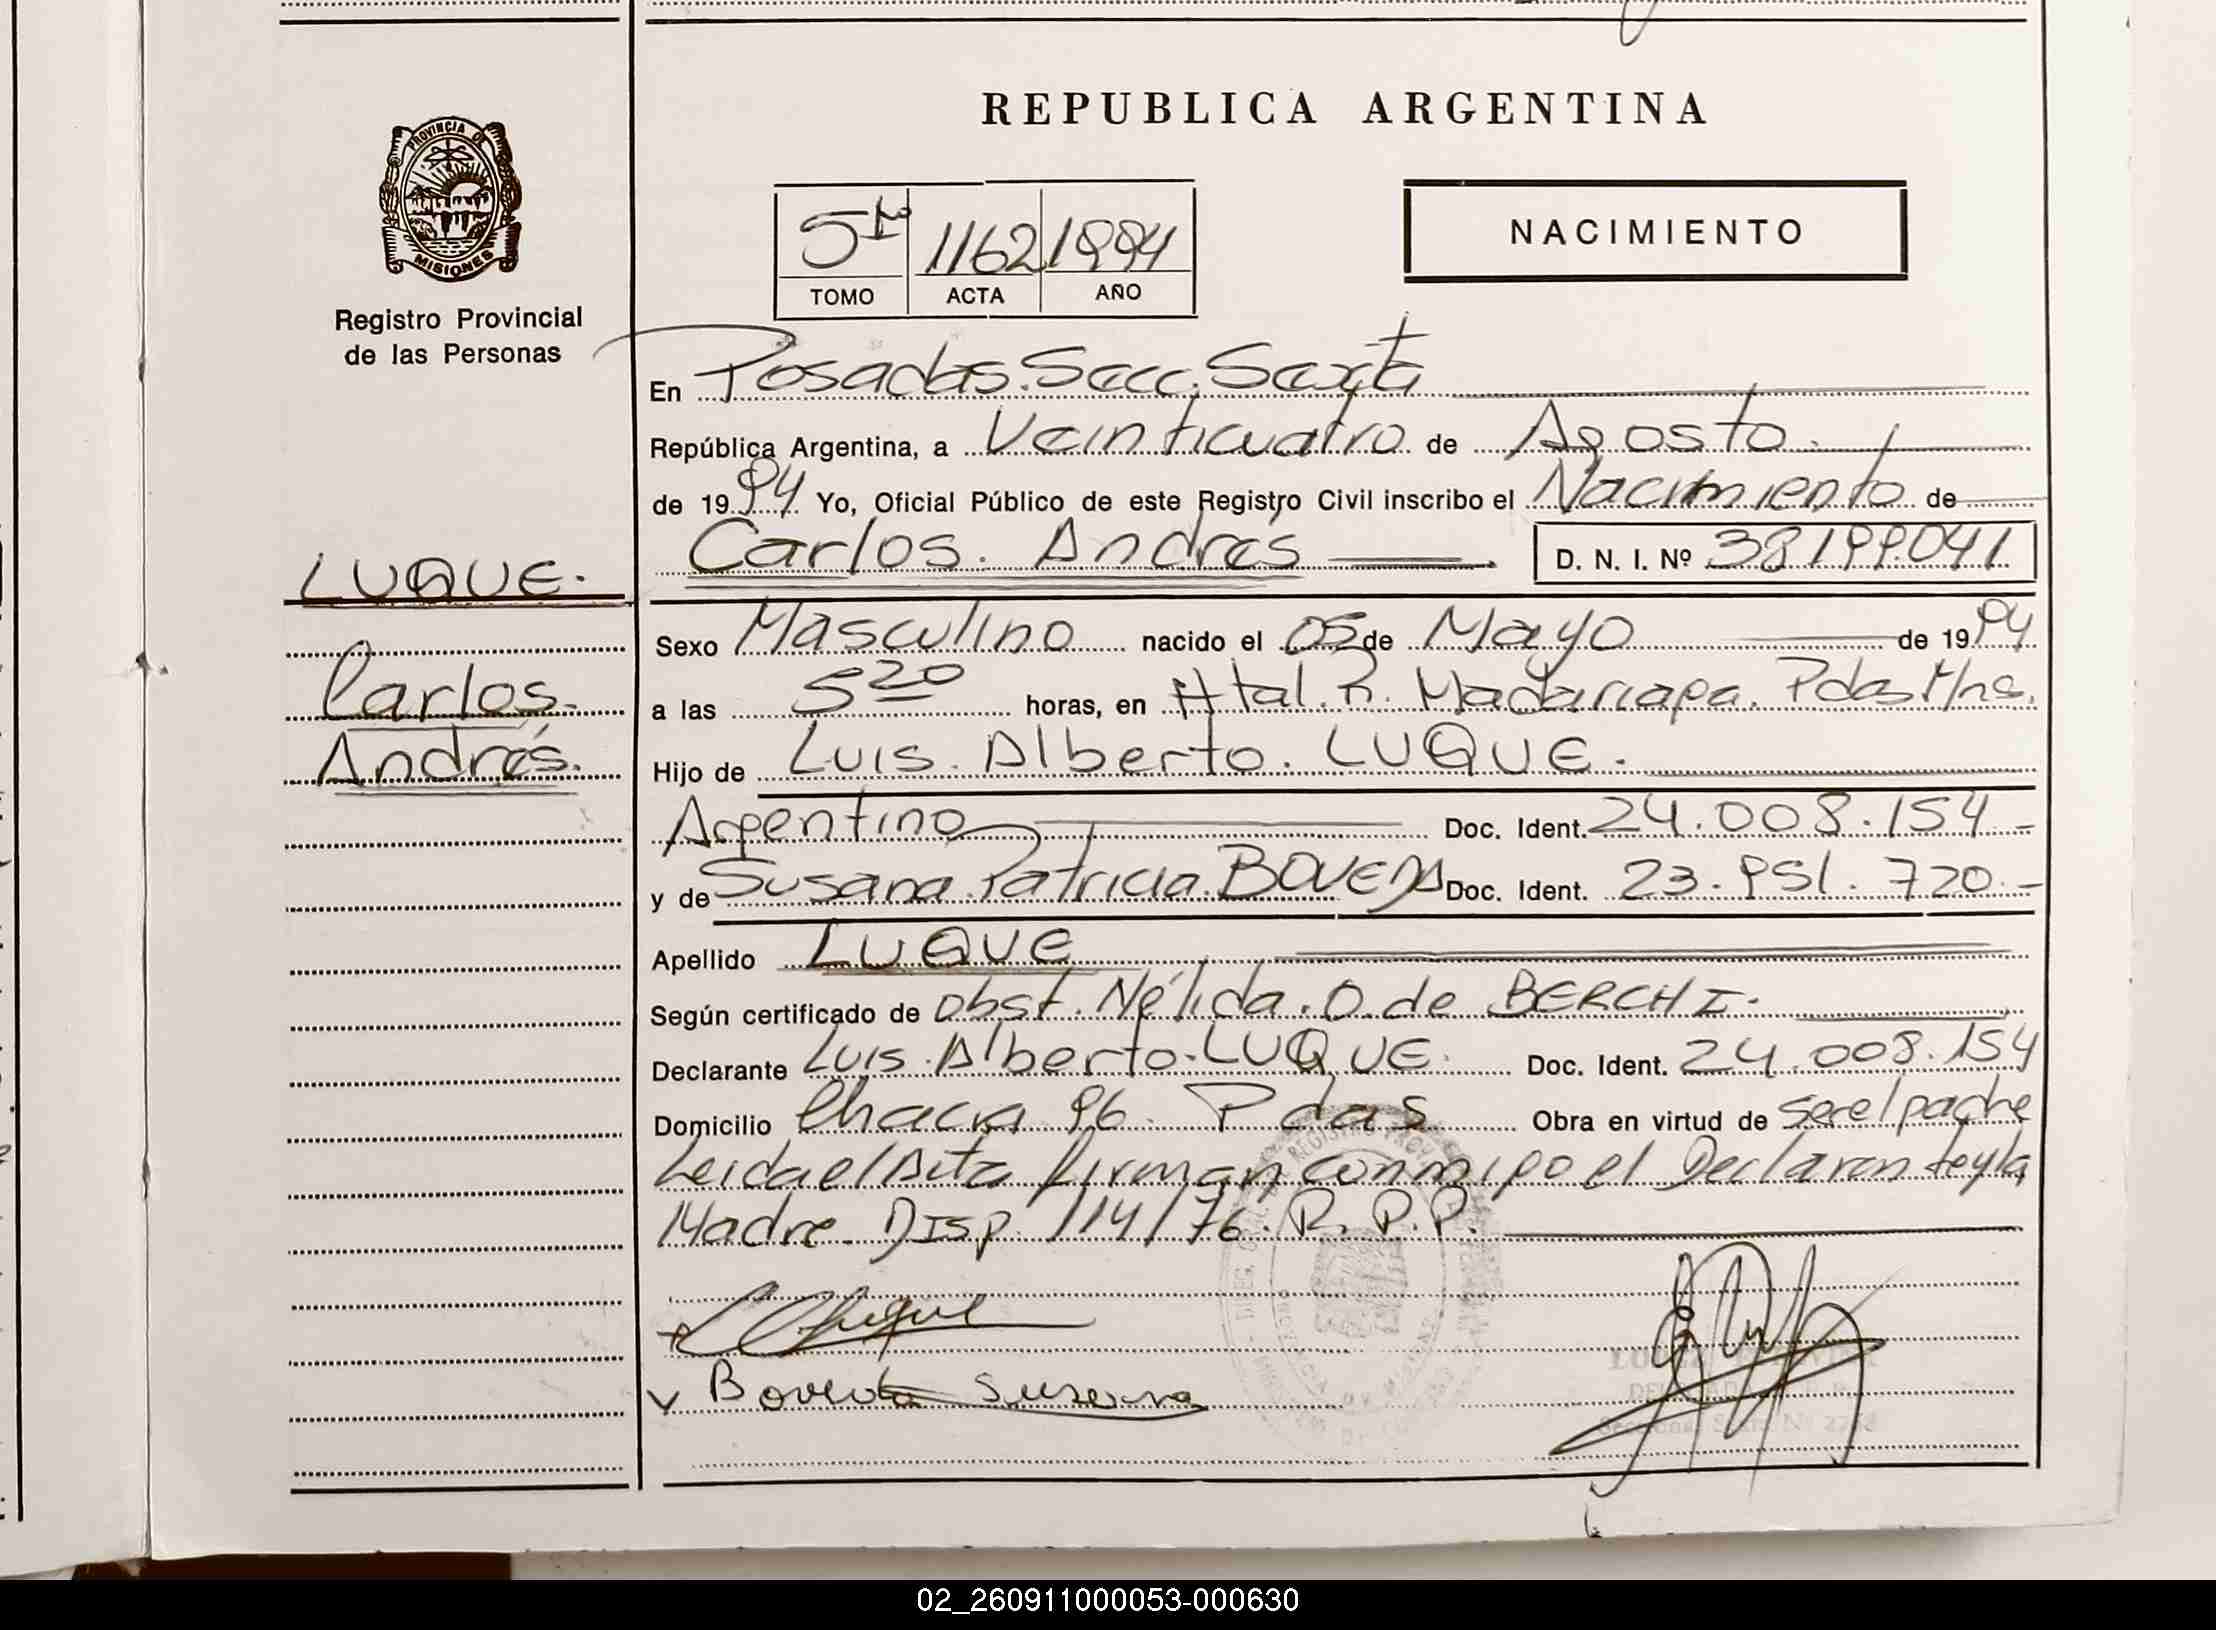 REPUBLICA ARGENTINA
PROVINCIA DE
MISIONES
Registro Provincial
de las Personas
5to 1162 1994
TOMO ACTA AÑO
NACIMIENTO
En Posadas. Secc. Sexta
República Argentina, a Veinticuatro de Agosto.
de 1994 Yo, Oficial Público de este Registro Civil inscribo el Nacimiento de
Carlos. Andrés D. N. I. Nº 38.199.041
LUQUE.
Carlos.
Andrés.
Sexo Masculino nacido el 05 de Mayo de 1994
a las 5 20 horas, en Htal. R. Madariaga. Pdas Mnes.
Hijo de Luis. Alberto. LUQUE.
Argentino Doc. Ident. 24.008.154-
y de Susana. Patricia. BOVEDA Doc. Ident. 23.951.720.-
Apellido LUQUE
Según certificado de obst. Nélida. O. de BERCHI.
Declarante Luis. Alberto. LUQUE. Doc. Ident. 24.008.154
Domicilio Chacra 96. Pdas Obra en virtud de ser el padre
Leida el Acta firman conmigo el Declarante y la
Madre. Disp. 114/76. R. P. P.
Luque
Boveda Susana
02_260911000053-000630